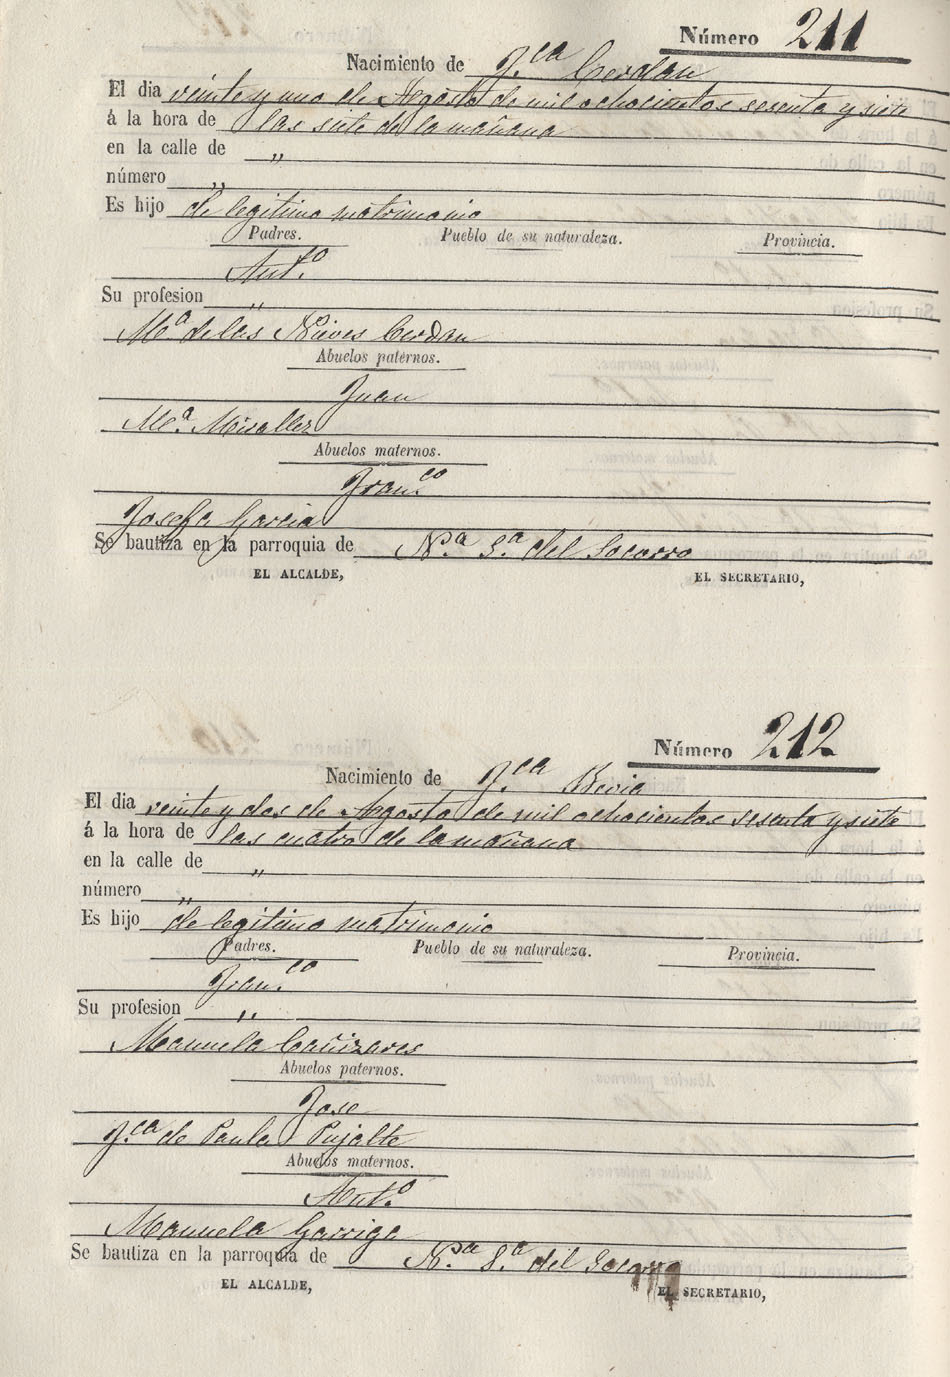 Número 211
Nacimiento de F.ca Cerdan
El dia veinte y uno de Agosto de mil ochocientos sesenta y siete
á la hora de las siete de la mañana
en la calle de "
número "
Es hijo de legitimo matrimonio
Padres. Pueblo de su naturaleza. Provincia.
Ant.o
Su profesion "
M.a de las Nieves Cerdan
Abuelos paternos.
Juan
M.a Miralles
Abuelos maternos.
Fran.co
Josefa Garcia
Se bautiza en la parroquia de N.a S.a del Socorro
EL ALCALDE, EL SECRETARIO,
Número 212
Nacimiento de F.ca Bevia
El dia veinte y dos de Agosto de mil ochocientos sesenta y siete
á la hora de las cuatro de la mañana
en la calle de "
número "
Es hijo de legitimo matrimonio
Padres. Pueblo de su naturaleza. Provincia.
Fran.co
Su profesion "
Manuela Cañizares
Abuelos paternos.
Jose
F.ca de Paula Pujalte
Abuelos maternos.
Ant.o
Manuela Garriga
Se bautiza en la parroquia de N.a S.a del Socorro
EL ALCALDE, EL SECRETARIO,